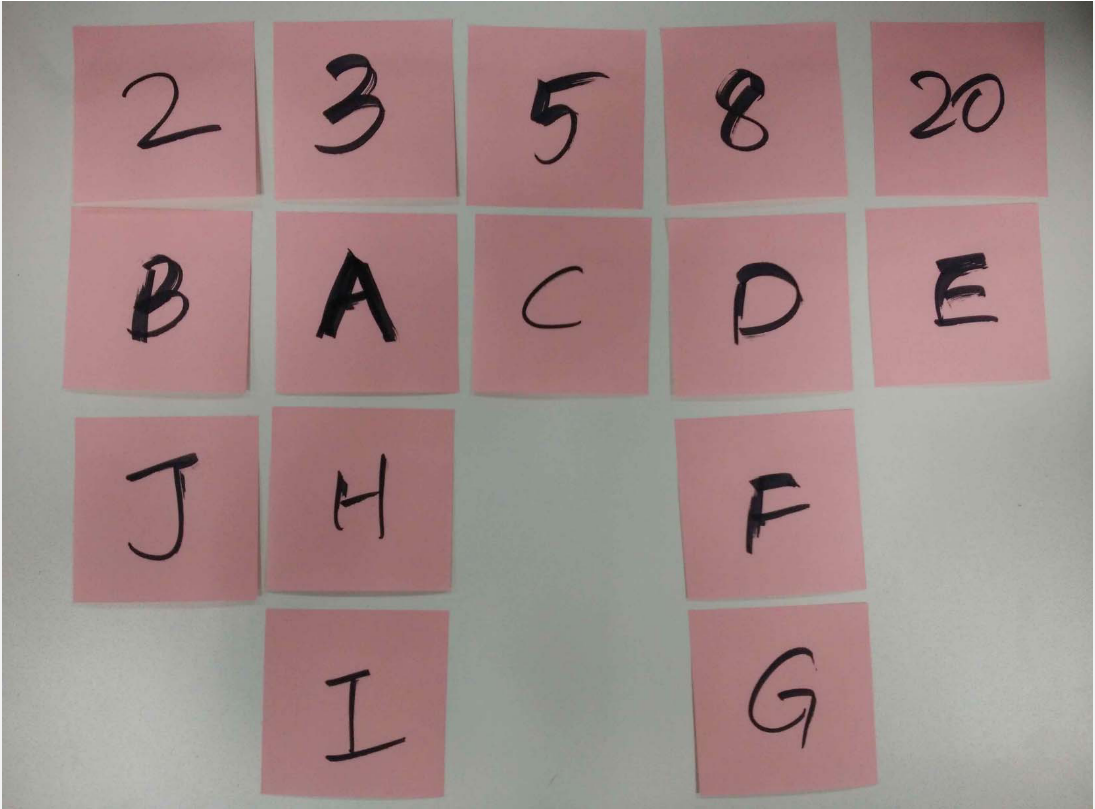 2 3 5 8 20
B A C D E
J H F
I G